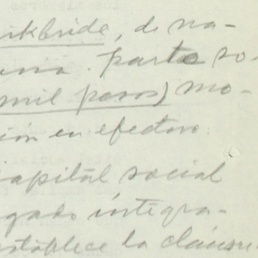 irkbride, de na-
parte so-
mil pesos) mo-
ión en efectivo.
capital social
gado integra-
stablece la cláusu-